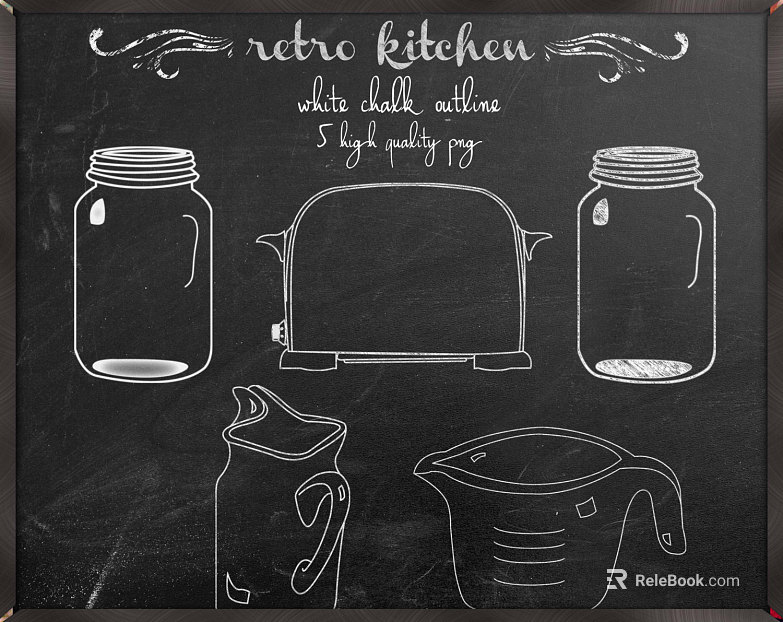 retro kitchen
white chalk outline
5 high quality png
ReleBook.com